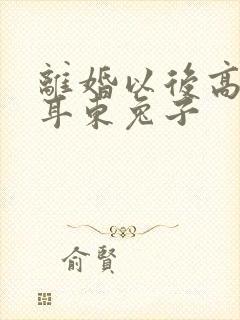 離婚以後高
耳東兔子
俞賢